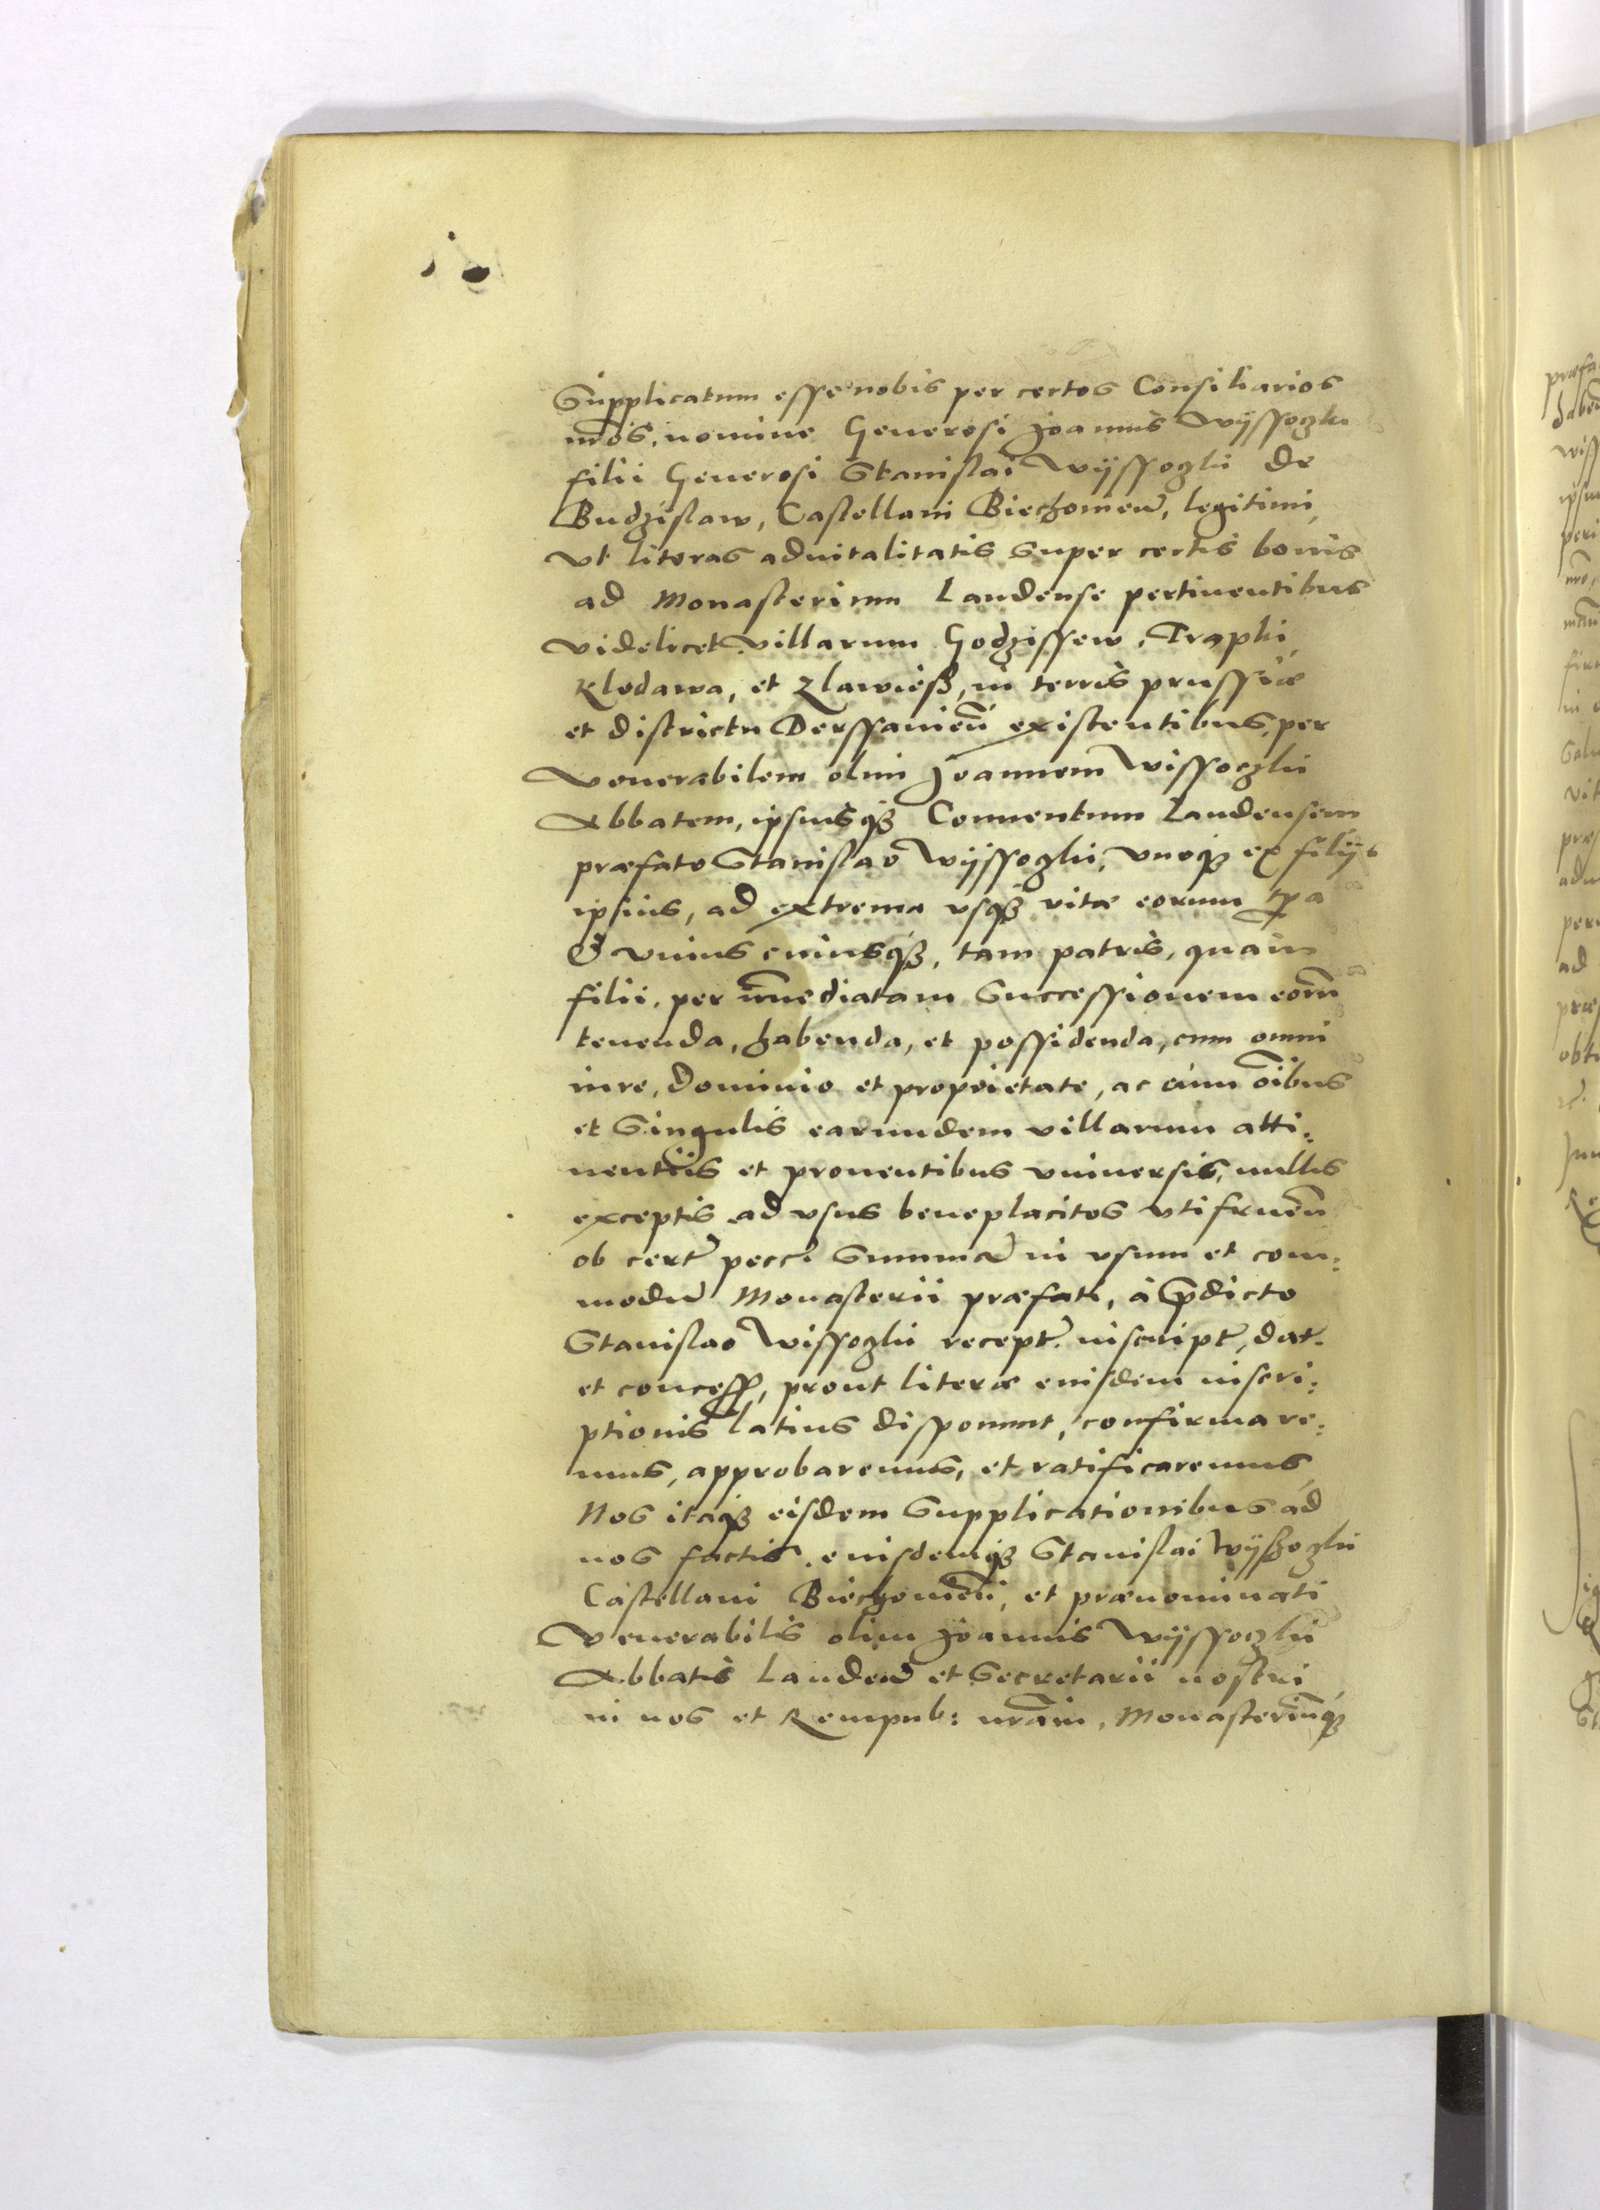 Supplicatum esse nobis per certos Consiliarios
nr̃os, nomine Generosi Joannis Wyssoczki
filii Generosi Stanislai Wyssoczki de
Budzislaw, Castellani Biechouien̄, legitimi,
vt literas aduitalitatis super certis bonis
ad Monasterium Landense pertinentibus
videlicet villarum Godzissew, Trapki,
Klodawa, et Zlawieß, in terris prussiæ
et districtu Derssauien̄ existentibus, per
Venerabilem olim Joannem Wissoczki
Abbatem, ipsiusqꝫ Conuentum Landensem
præfato Stanislao Wyssoczki, vnoqꝫ ex filijs
ipsius, ad extrema vsqꝫ vitæ eorum tp̃a
& vnius cuiusqꝫ, tam patris, quam
filii, per im̄ediatam Successionem eor̄m
tenenda, habenda, et possidenda, cum omni
iure, dominio et proprietate, ac cum oībus
et Singulis earundem villarum atti⸗
nentiis et prouentibus vniuersis, nullis
exceptis ad vsus beneplacitos vtifruen̄
ob cert̃ pecc. Summã in vsum et com⸗
modũ Monasterii præfati, à p̃dicto
Stanislao Wissoczki recept. inscript, dat.
et concess, prout literæ eiusdem inscri⸗
ptionis latius disponunt, confirmare⸗
mus, approbaremus, et ratificaremus
Nos itaqꝫ eisdem Supplicationibus ad
nos factis, eiusdemqꝫ Stanislai Wyssoczki
Castellani Biechouien̄, et prænominati
Venerabilis olim Joannis Wyssoczki
Abbatis Landeñ et Secretarii nostri
in nos et Rempub: nr̃am, Monasteriūqꝫ